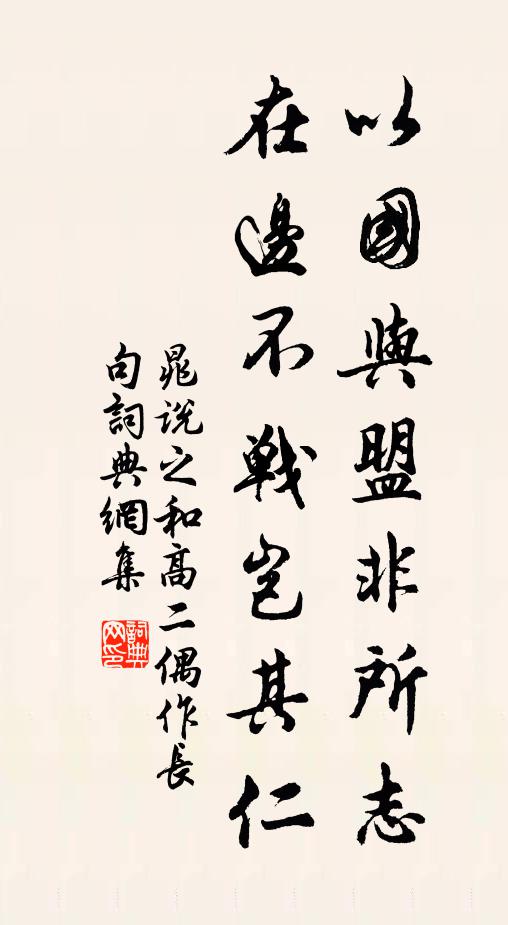 以國與盟非所志
在邊不戰豈其仁
晁說之和高二偶作長
句詞典網集
詞典網印